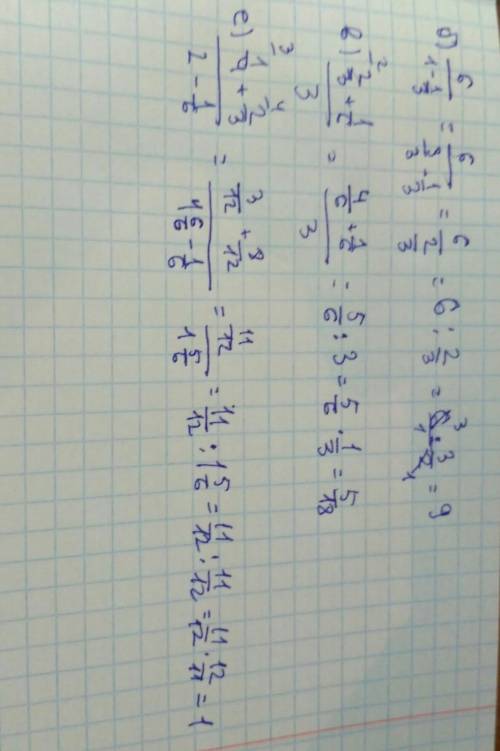 б) 6/(1 - 1/3) = 6/(3/3 - 1/3) = 6/(2/3) = 6 : 2/3 = 6 · 3/2 = 9
в) (2/3 + 1/6)/3 = (4/6 + 1/6)/3 = 5/6 : 3 = 5/6 · 1/3 = 5/18
е) (1/4 + 2/3)/(2 - 1/6) = (3/12 + 8/12)/(1 6/6 - 1/6) = (11/12)/(1 5/6) = 11/12 : 1 5/6 = 11/12 : 11/12 = 11/12 · 12/11 = 1